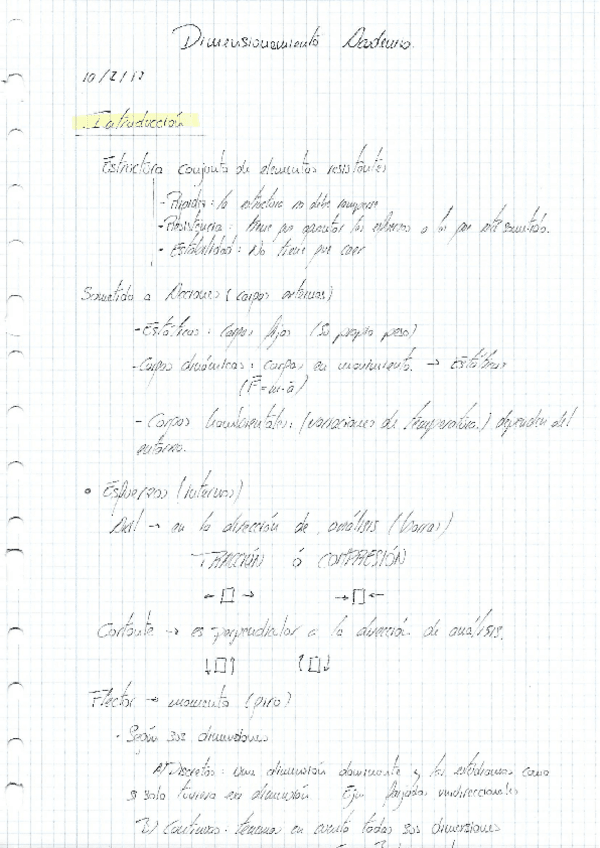 Dimensionamiento Academia.
10/2/12
Introducción
Estructura conjunto de elementos resistentes
- Rigidez: la estructura no debe romperse
- Resistencia: tiene que garantizar los esfuerzos a los que esté sometida.
- Estabilidad: No tiene que caer
Sometida a Acciones (cargas externas)
- Estáticas: cargas fijas (su propio peso)
- Cargas dinámicas: cargas en movimiento. → Estáticas
(F=m·a)
- Cargas (variaciones de temperatura.) dependen del
entorno.
• Esfuerzos (internos)
Axil → en la dirección de análisis (barras)
TRACCIÓN ó COMPRESIÓN
← □ → → □ ←
Cortante → es perpendicular a la dirección de análisis.
↓□↑ ↑□↓
Flector → momento (giro)
· Según sus dimensiones
A) Discretos: una dimensión dominante y los estudiamos como
si solo tuviera esa dimensión Ejm forjados unidireccionales
B) Continuos: tenemos en cuenta todas sus dimensiones